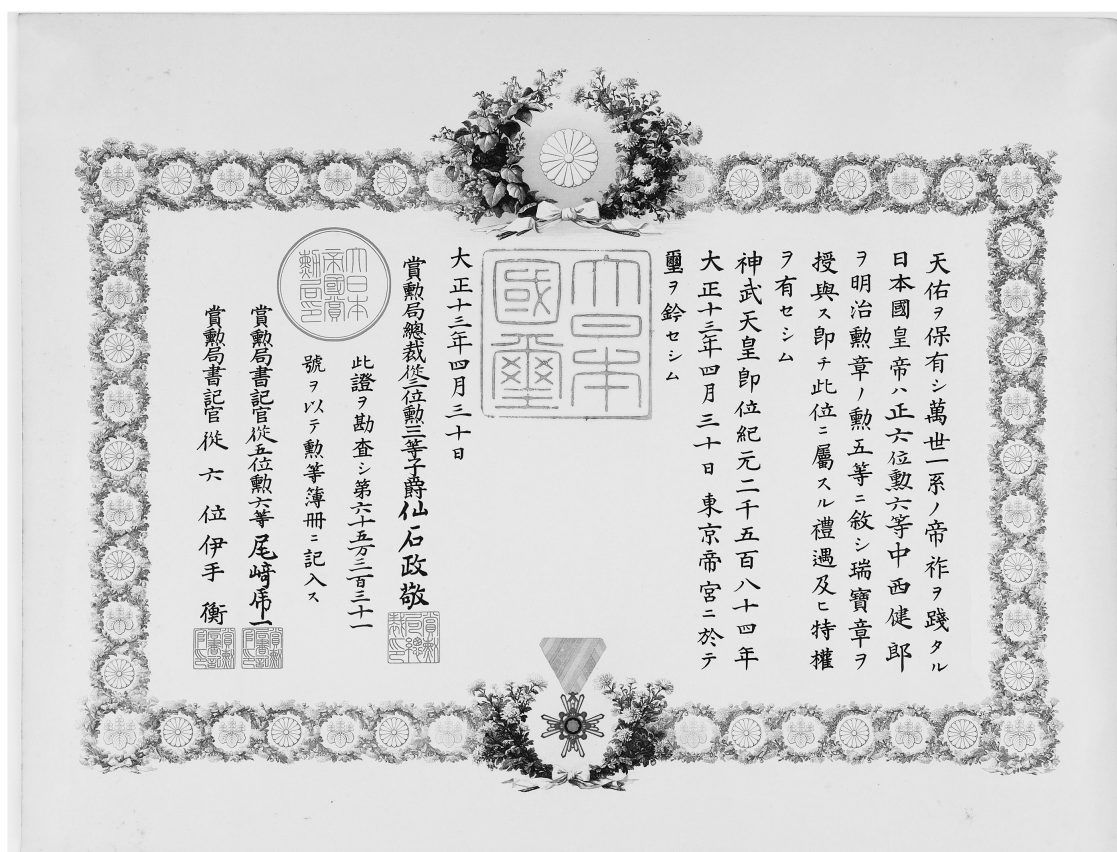 天佑ヲ保有シ萬世一系ノ帝祚ヲ踐タル
日本國皇帝ハ正六位勲六等中西健郎
ヲ明治勲章ノ勲五等ニ敘シ瑞寶章ヲ
授與ス卽チ此位ニ屬スル禮遇及ヒ特權
ヲ有セシム
神武天皇卽位紀元二千五百八十四年
大正十三年四月三十日東京帝宮ニ於テ
璽ヲ鈐セシム
大日本
國璽
大正十三年四月三十日
賞勲局總裁從三位勲三等子爵仙石政敬
賞勲
局總
裁印
大日本
帝國賞
勲局印
此證ヲ勘査シ第六十五万三百三十一
號ヲ以テ勲等簿册ニ記入ス
賞勲局書記官從五位勲六等尾﨑
賞勲
局書記
官印
賞勲局書記官從六位伊手衡
賞勲
局書記
官印